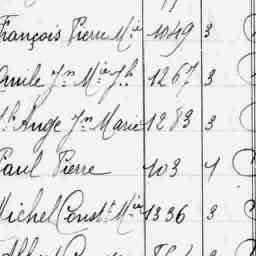 François Pierre Mie 1049 3
Emile Jn Mie Jh 1267 3
Jh Ange Jn Marie 1283 3
Paul Pierre 103 4
Michel Const. Mie 1336 3